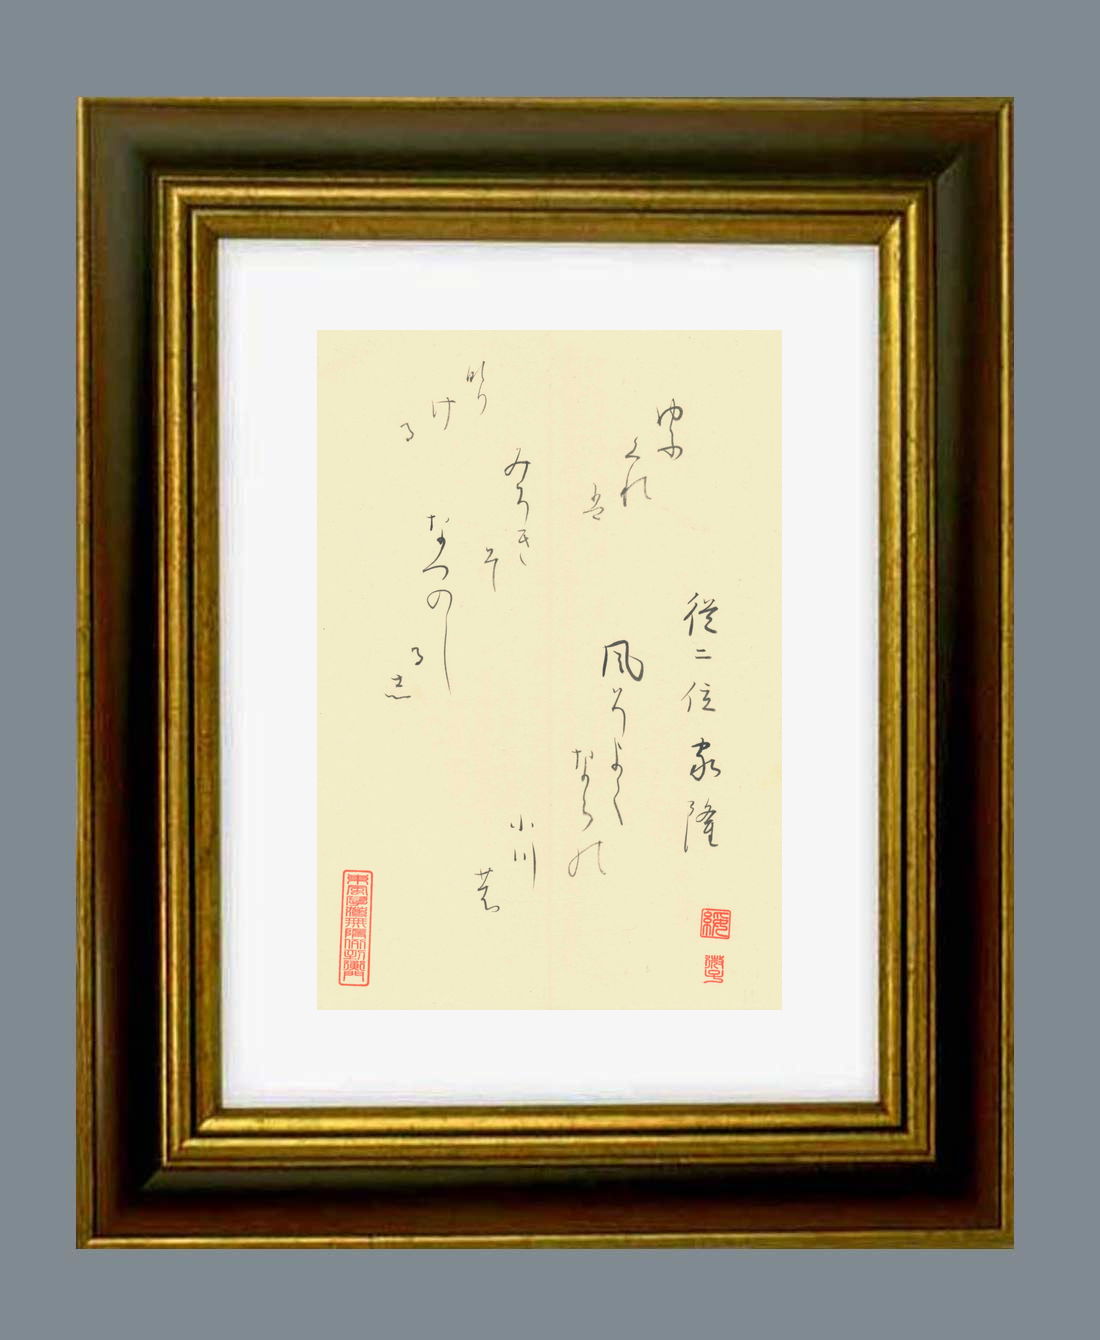 従二位家隆
風そよく
ならの
小川
ゆふ
くれ
は
みそき
そ
なつのし
る志
なり
け
る